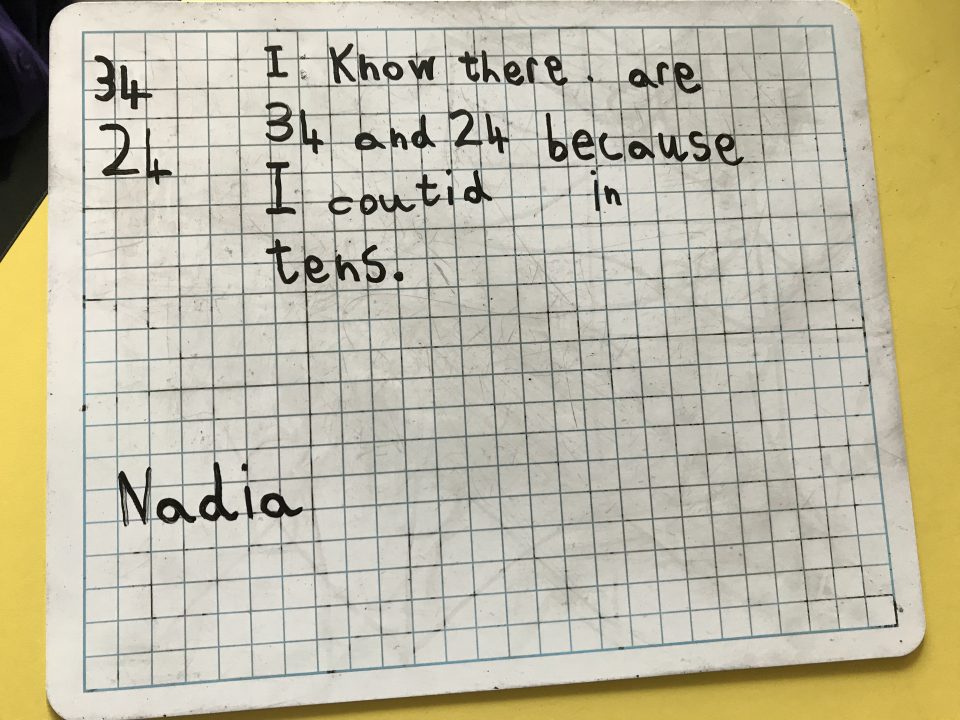 34
24
I Know there. are
34 and 24 because
I coutid in
tens.
Nadia